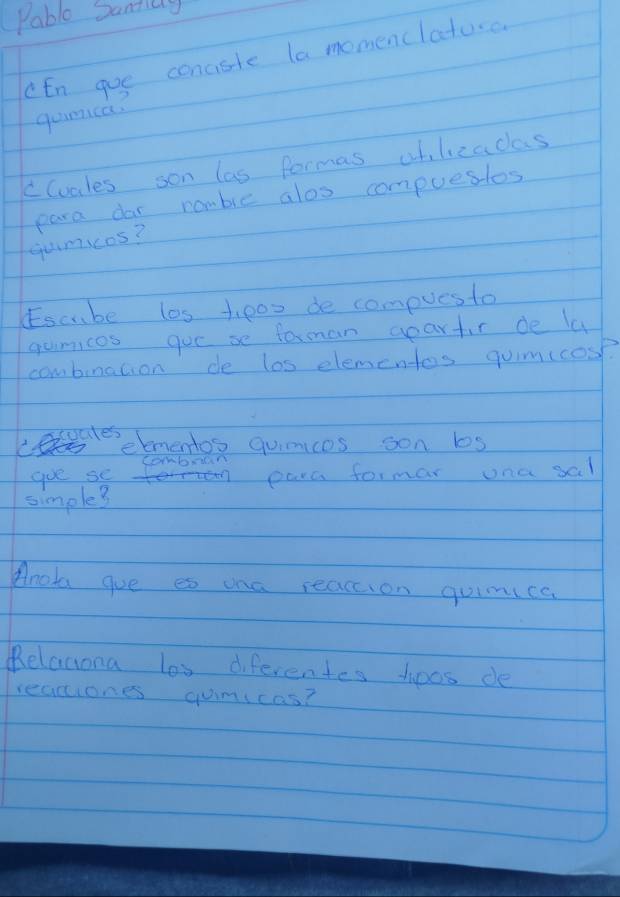 Pablo Santiag
¿En que conciste la momenclatura
quimica?
¿Cuales son las formas utilizadas
para dar nombre alos compuestos
quimicos?
Escribe los tipos de compuesto
quimicos que se forman apartir de la
combinacion de los elementos quimicos?
¿cuales elementos quimicos son los
que se combinan para formar una sal
simple?
Anota que es una reaccion quimica
Relaciona los diferentes tipos de
reacciones quimicas?